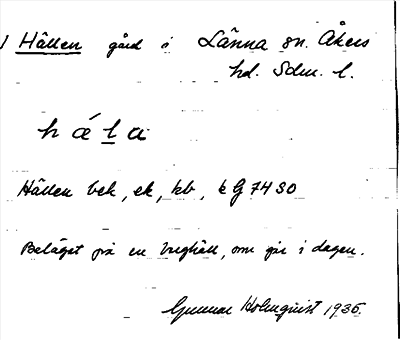 1 Hällen gård i Länna sn. Åkers
hd. Sdm. l.
h ǽ l a
Hällen bek, ek, kb, kG 7430
Beläget på en berghäll, som går i dagen.
Gunnar Holmquist 1935.